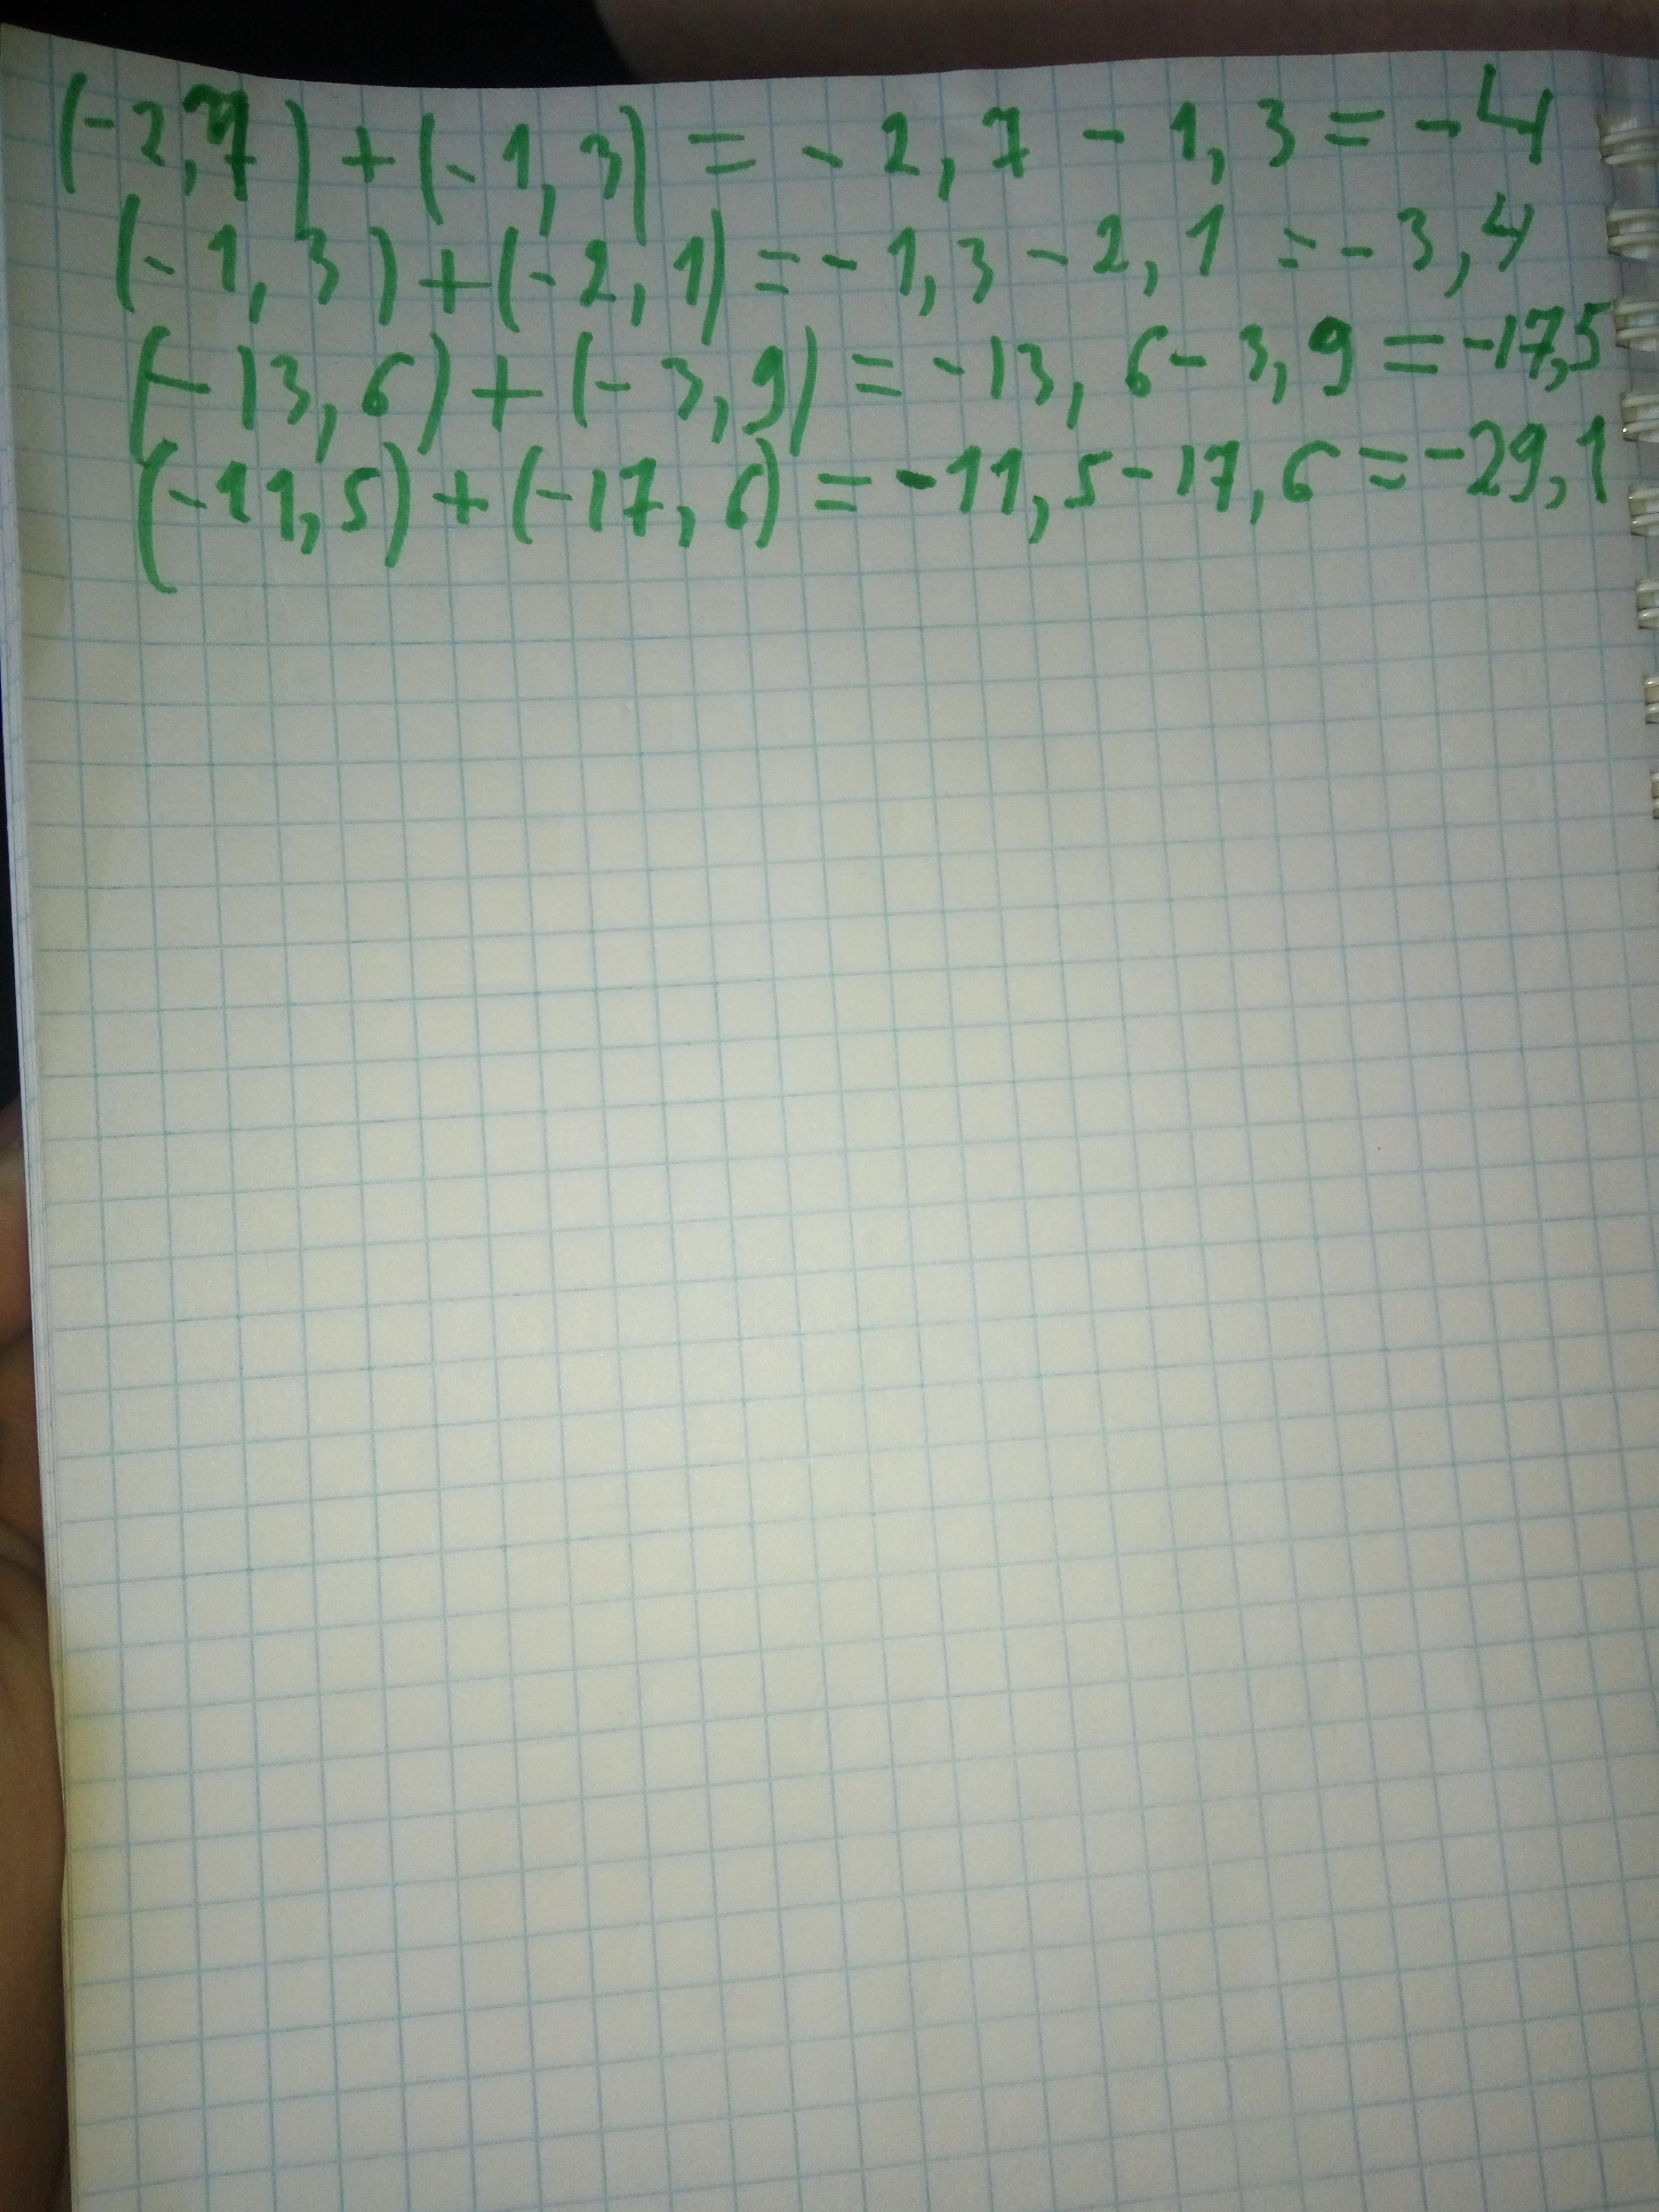 (-2,7) + (-1,3) = -2,7 - 1,3 = -4
(-1,3) + (-2,1) = -1,3 - 2,1 = -3,4
(-13,6) + (-3,9) = -13,6 - 3,9 = -17,5
(-11,5) + (-17,6) = -11,5 - 17,6 = -29,1